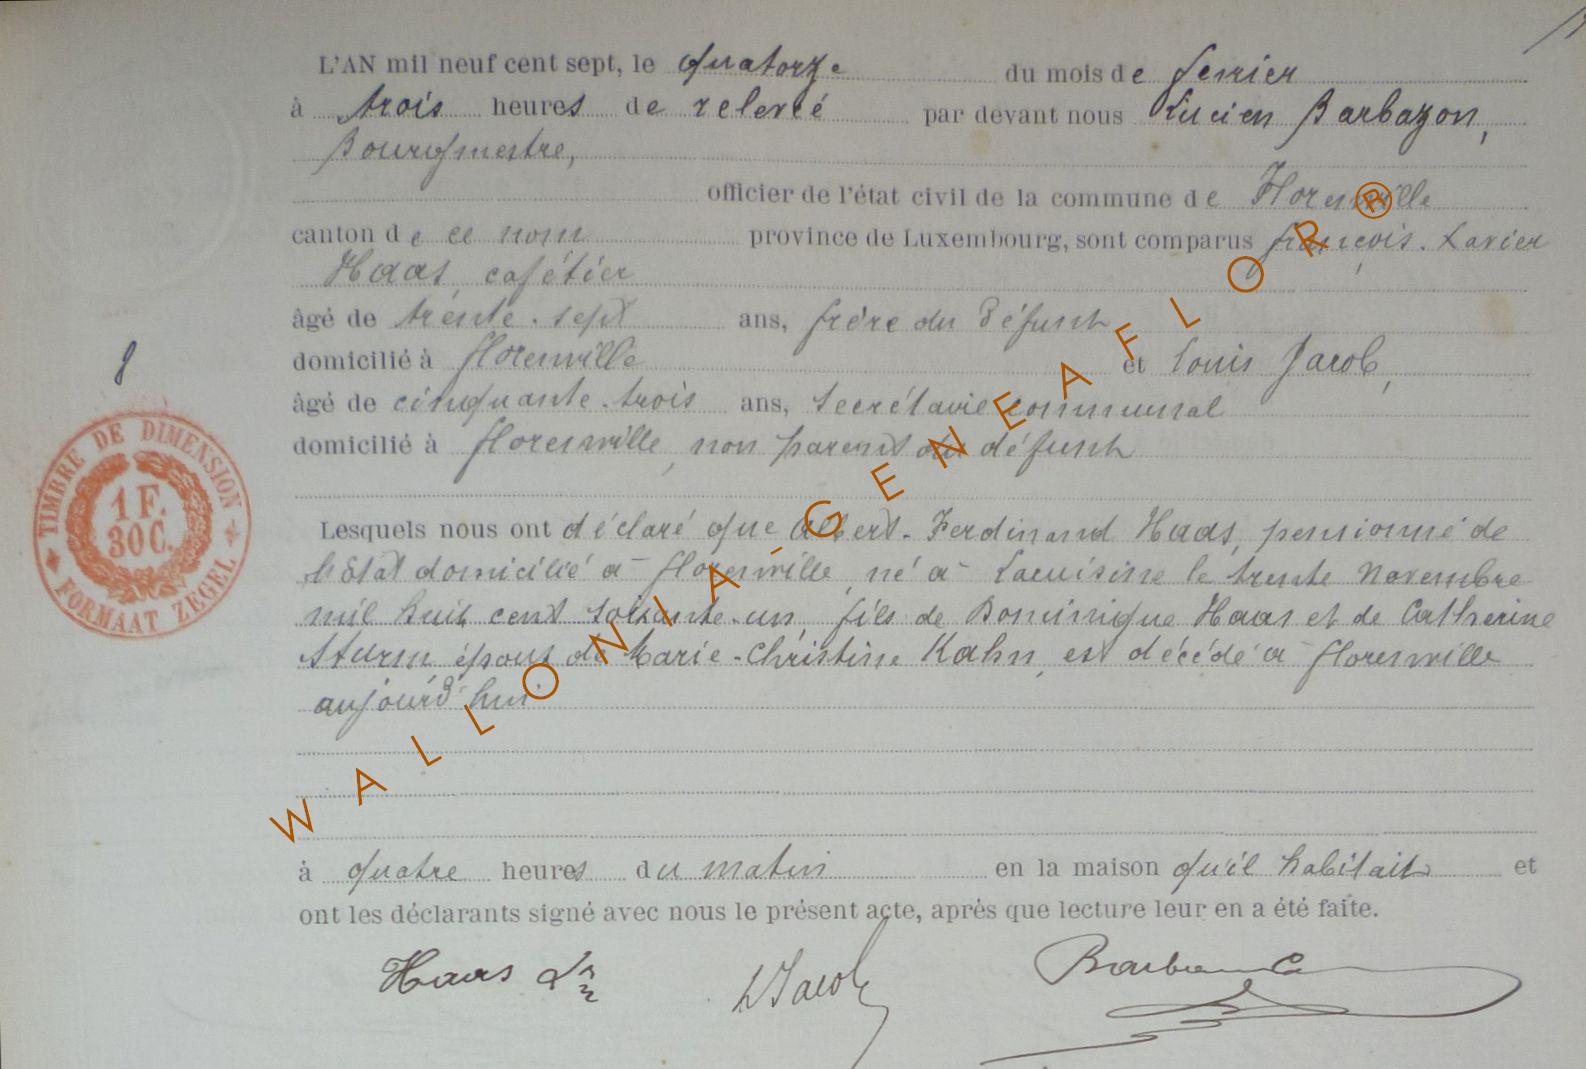 L'AN mil neuf cent sept, le quatorze du mois de fevrier
à trois heures de relevée par devant nous Lucien Barbazon,
Bourgmestre,
officier de l'état civil de la commune de Florenville
canton de ce nom province de Luxembourg, sont comparus françois-Xavier
Haas, cafétier
âgé de trente-sept ans, frère du défunt
domicilié à florenville et Louis Jacob,
8
âgé de cinquante-trois ans, secrétaire communal
domicilié à florenville, non parent du défunt
TIMBRE DE DIMENSION
1 F.
30 C.
FORMAAT ZEGEL
Lesquels nous ont déclaré que Albert-Ferdinand Haas, pensionné de
l'Etat domicilié à florenville, né à Lacuisine le trente Novembre
mil huit cent soixante-un, fils de Dominique Haas et de Catherine
Sturm, époux de Marie-Christine Kahn, est décédé à florenville
aujourd'hui
à quatre heures du matin en la maison qu'il habitait et
ont les déclarants signé avec nous le présent acte, après que lecture leur en a été faite.
Haas LJacob
WALLONIA-GENEAFLOR®